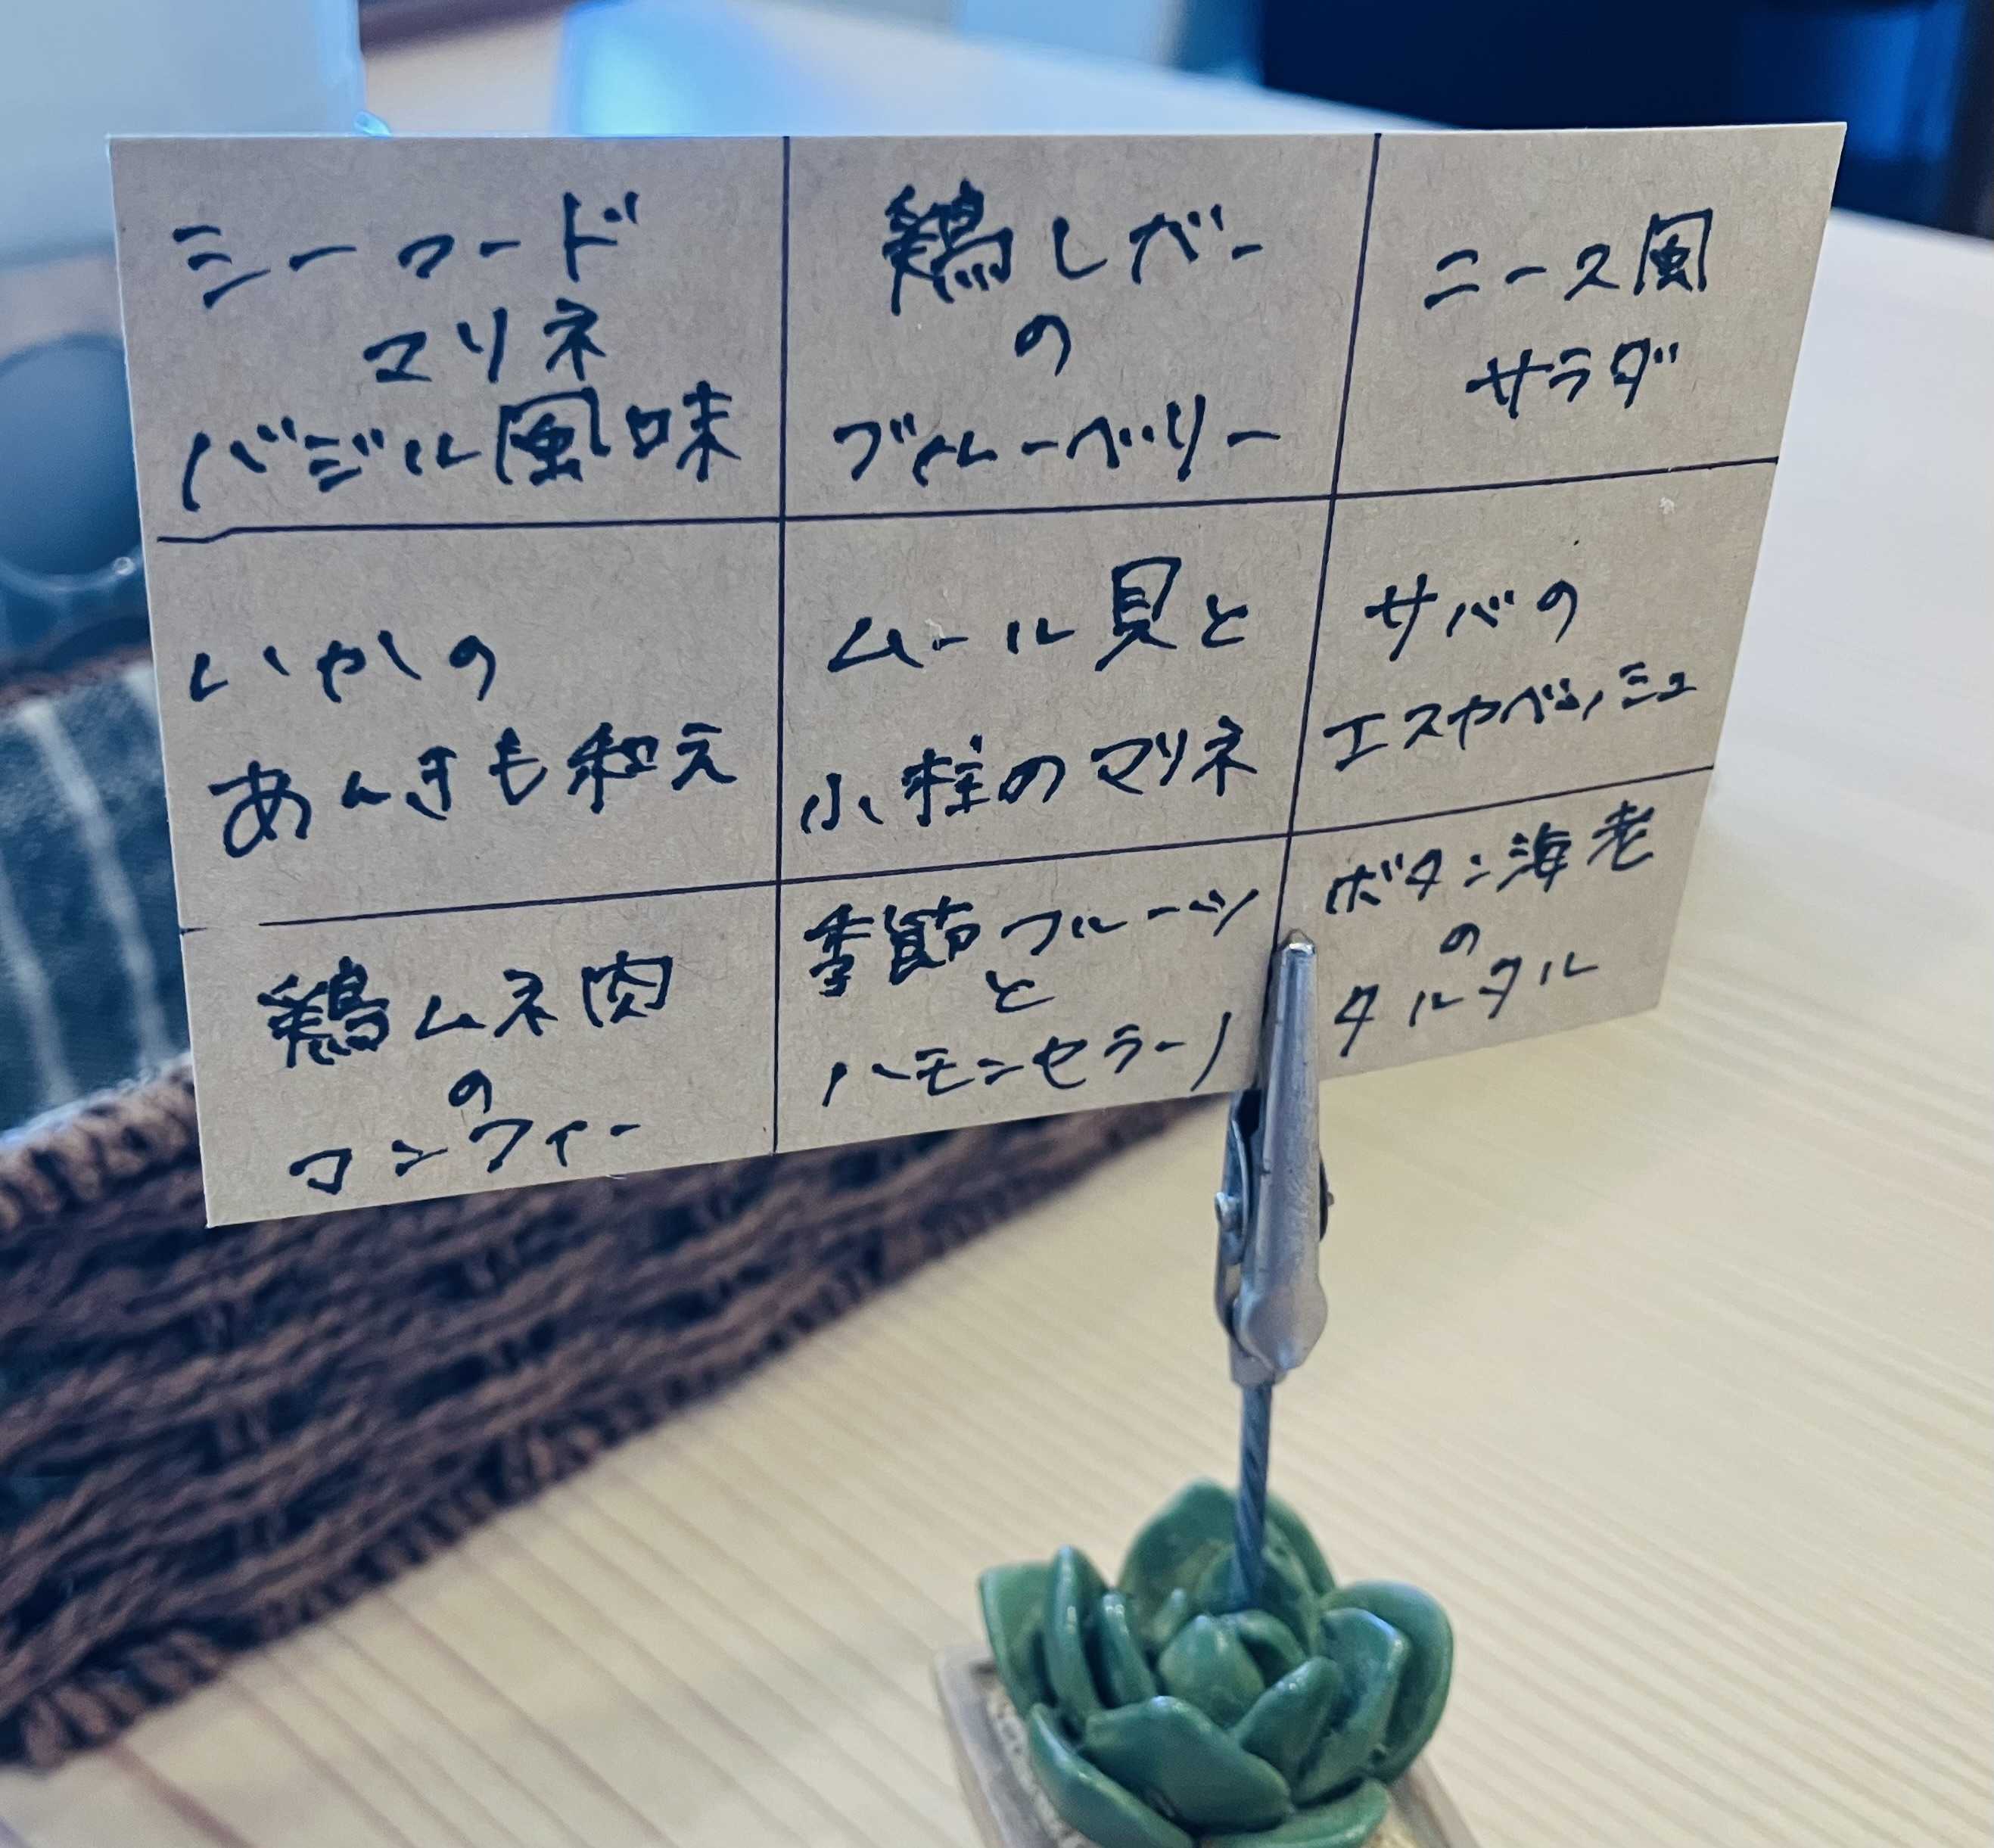 シーフード
マリネ
バジル風味
鶏レバー
の
ブルーベリー
ニース風
サラダ
いかの
あんきも和え
ムール貝と
小柱のマリネ
サバの
エスカベッシュ
鶏ムネ肉
の
コンフィー
季節フルーツ
と
ハモンセラーノ
ボタン海老
の
タルタル